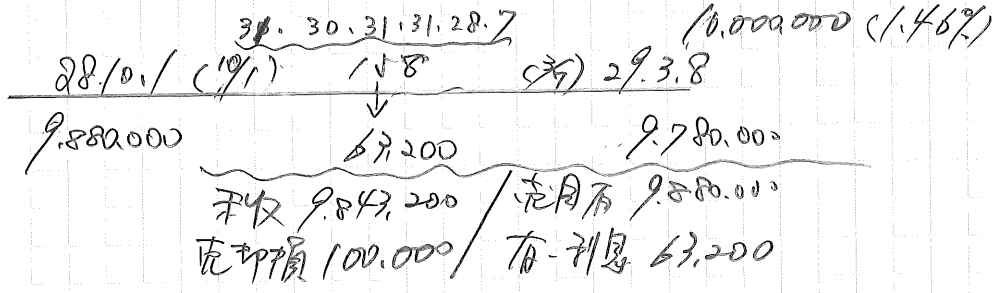 31. 30. 31. 31. 28. 7 10.000.000 (1.46%)
28.10.1 (10/1) 158 (売) 29.3.8
9.880.000 63,200 9.780.000
未収 9.843,200 / 売目有 9.880.000
売却損 100.000 / 有-利息 63,200